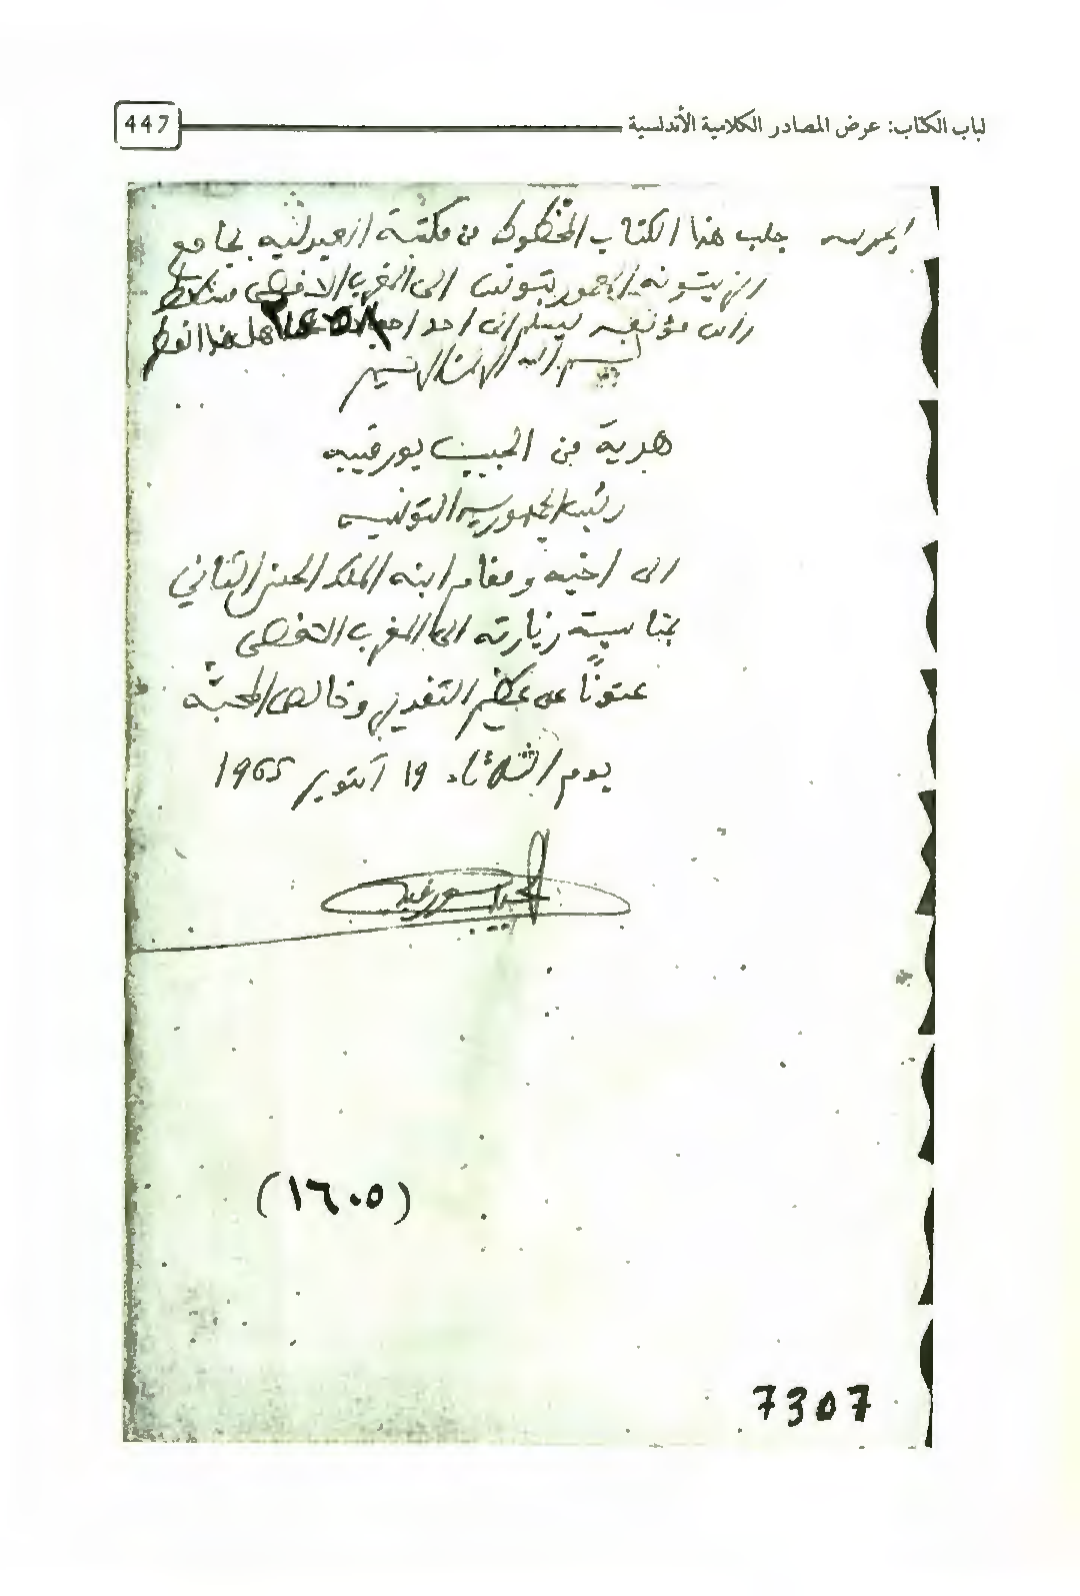 لباب الكتاب: عرض المصادر الكلامية الأندلسية 447
الحمد لله جلب هذا الكتاب المخطوط من مكتبة العبدلية بجامع
الزيتونة المعمور بتونس الى المغرب الاقصى
ليسلم الى احد هذا القطر
بسم الله الرحمن الرحيم
هدية من الحبيب بورقيبه
رئيس الجمهورية التونسية
الى اخيه ومقام ابنه الملك الحسن الثاني
بمناسبة زيارته الى المغرب الاقصى
عنونًا على عظيم التقدير وخالص المحبّة
يوم الثلاثاء 19 أكتوبر 1965
الحبيب بورقيبه
(١٦٠٥)
7307